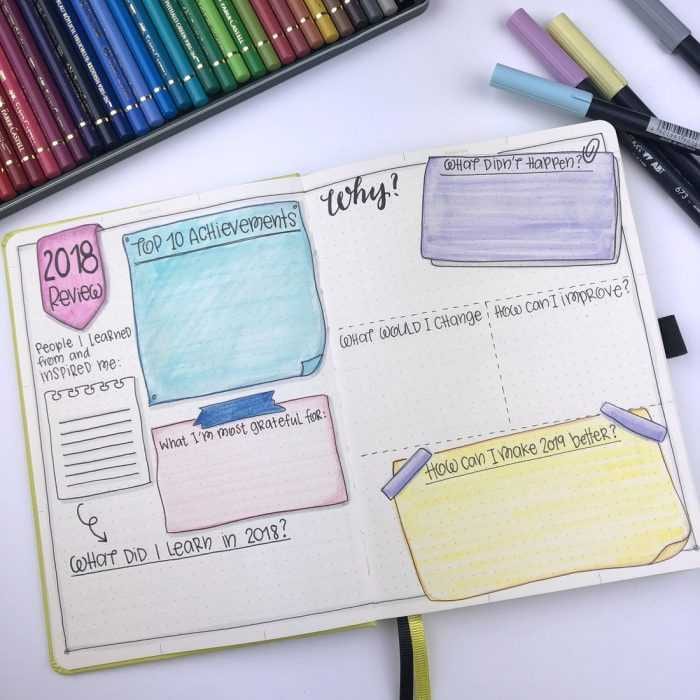 2018
Review
TOP 10 ACHIEVEMENTS
People I learned
from and
INSPIRED me:
What I'm most grateful for:
WHAT DID I LEARN IN 2018?
Why?
WHAT DIDN'T HAPPEN?
WHAT WOULD I CHANGE
HOW CAN I IMPROVE?
HOW CAN I MAKE 2019 BETTER?